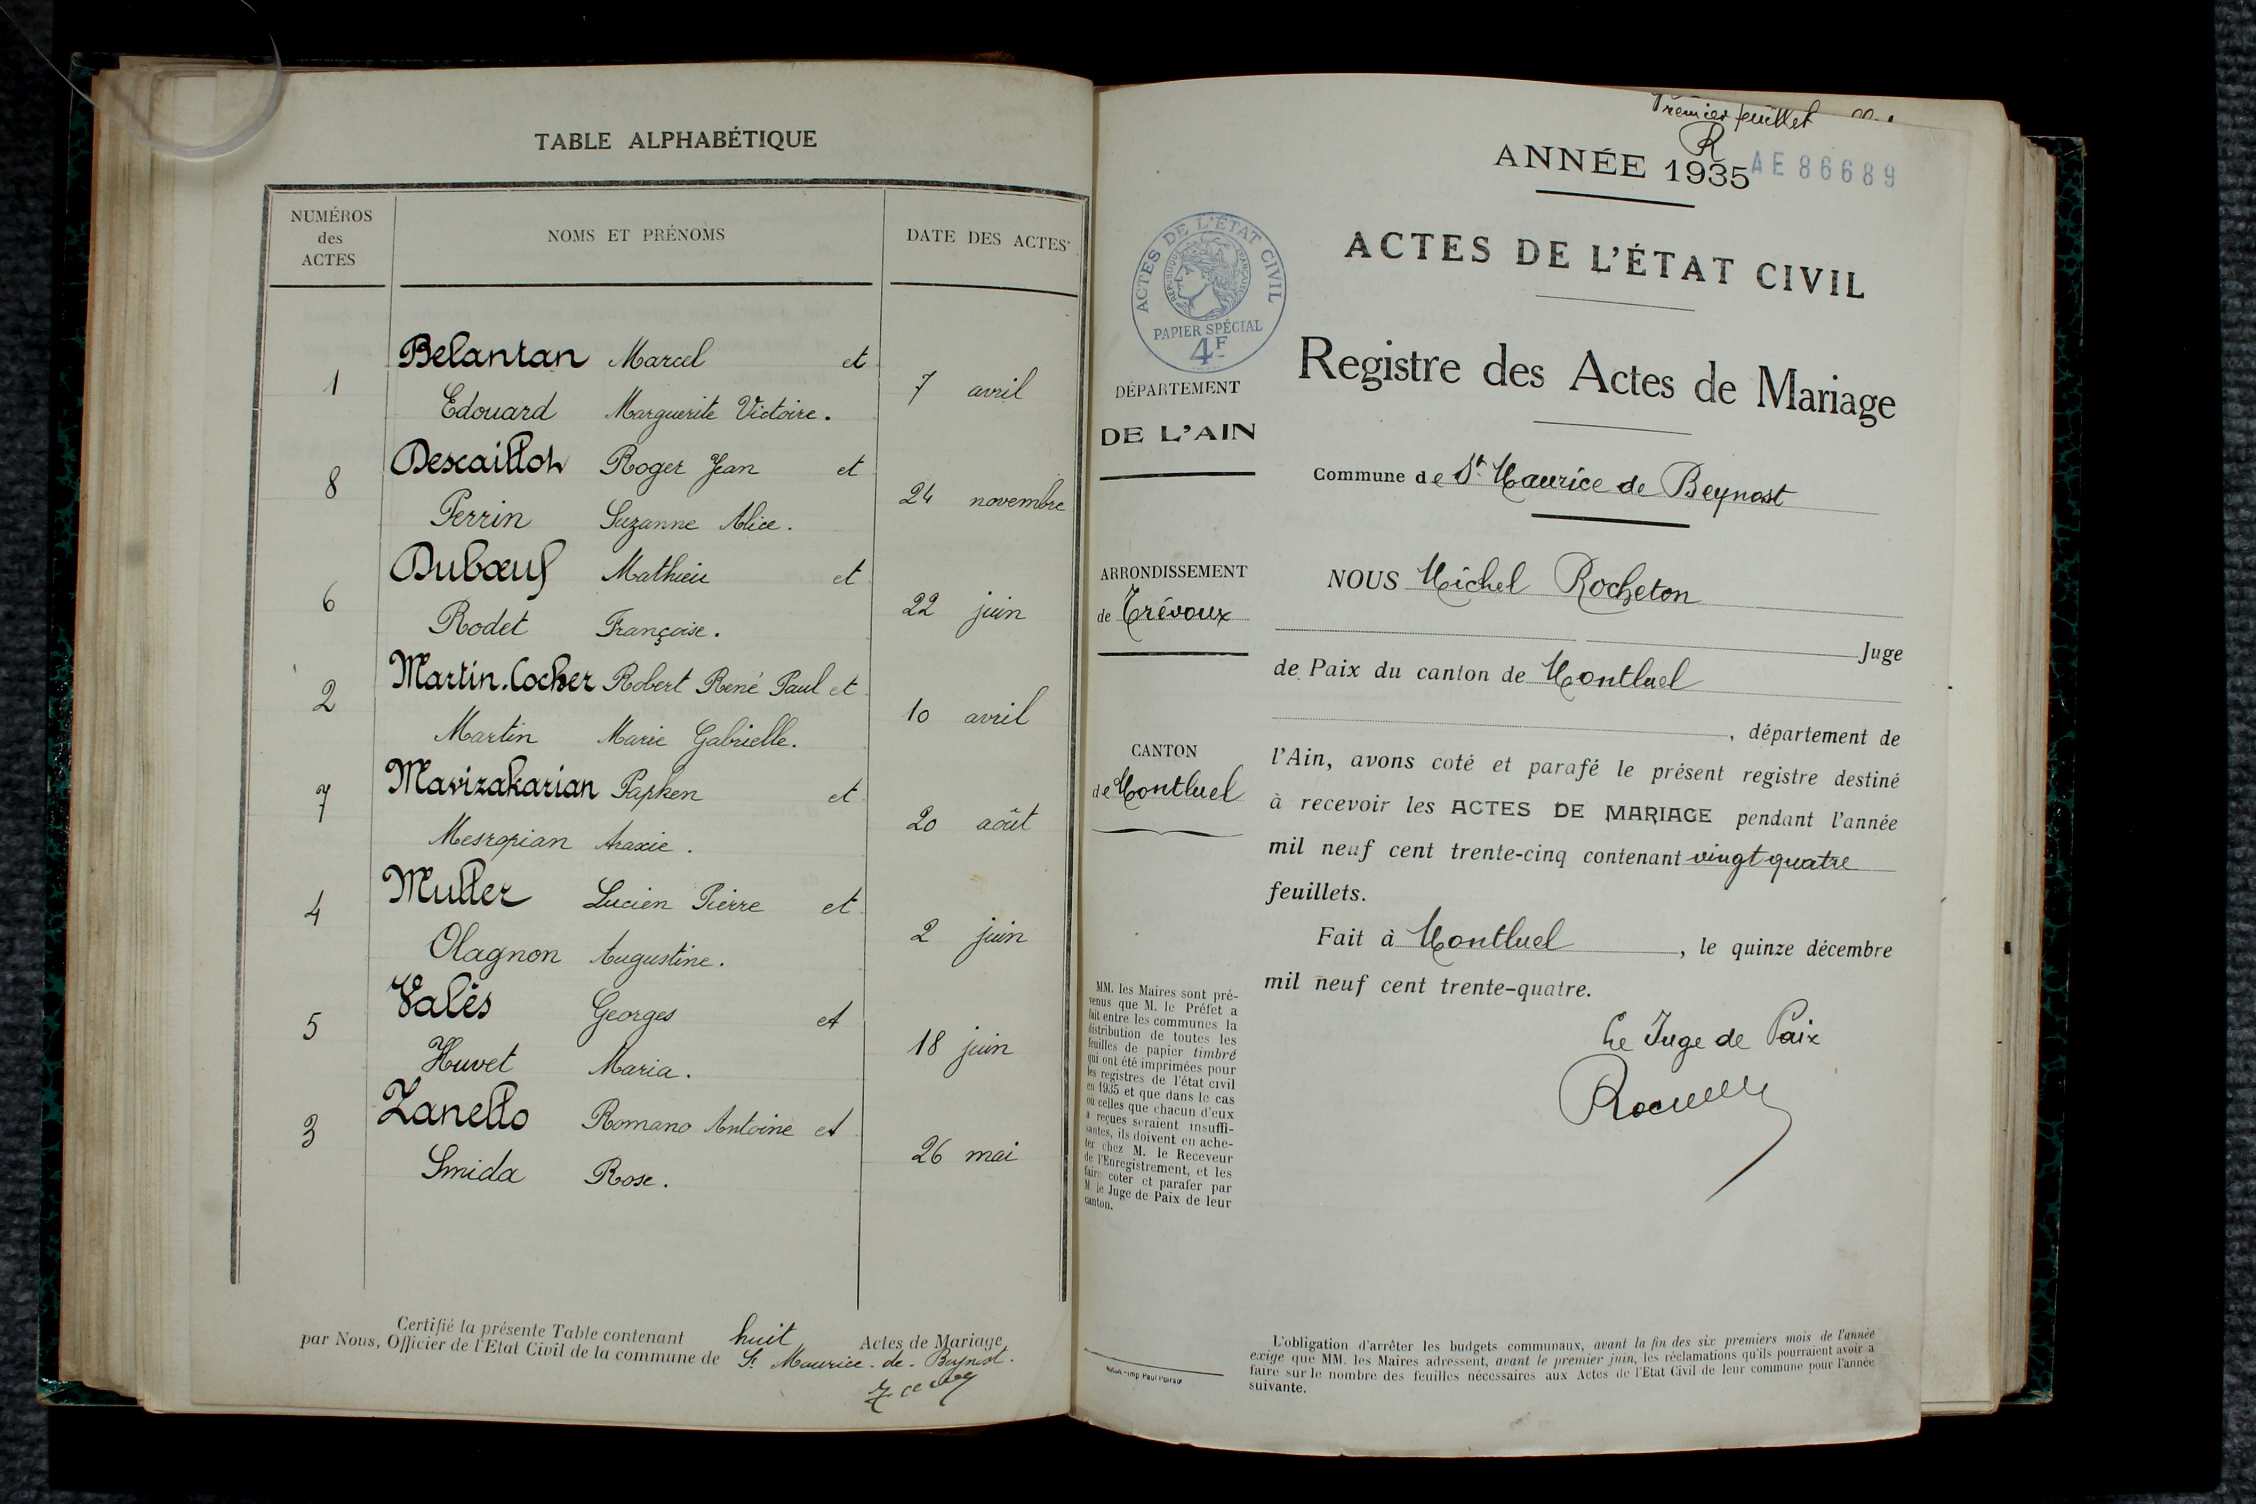 TABLE ALPHABÉTIQUE
NUMÉROS
des
ACTES
NOMS ET PRÉNOMS
DATE DES ACTES
1
Belantan Marcel et
Edouard Marguerite Victoire.
7 avril
8
Descaillot Roger Jean et
Perrin Suzanne Alice.
24 novembre
6
Dubœuf Mathieu et
Rodet Françoise.
22 juin
2
Martin.Cocher Robert René Paul et
Martin Marie Gabrielle.
10 avril
7
Mavizakarian Papken et
Mesropian Araxie.
20 août
4
Muller Lucien Pierre et
Olagnon Augustine.
2 juin
5
Valès Georges et
Huvet Maria.
18 juin
3
Zanello Romano Antoine et
Smida Rose.
26 mai
Certifié la présente Table contenant huit Actes de Mariage
par Nous, Officier de l'Etat Civil de la commune de St Maurice-de-Beynost.
Premier feuillet
R
ANNÉE 1935
AE 86689
ACTES DE L'ÉTAT CIVIL
RÉPUBLIQUE FRANÇAISE
PAPIER SPÉCIAL
4F
ACTES DE L'ÉTAT CIVIL
Registre des Actes de Mariage
DÉPARTEMENT
DE L'AIN
Commune de St Maurice de Beynost
ARRONDISSEMENT
de Trévoux
CANTON
de Montluel
NOUS Michel Rocheton
Juge
de Paix du canton de Montluel
, département de
l'Ain, avons coté et parafé le présent registre destiné
à recevoir les ACTES DE MARIAGE pendant l'année
mil neuf cent trente-cinq contenant vingt quatre
feuillets.
Fait à Montluel, le quinze décembre
mil neuf cent trente-quatre.
Le Juge de Paix
MM. les Maires sont pré-
venus que M. le Préfet a
fait entre les communes la
distribution de toutes les
feuilles de papier timbré
qui ont été imprimées pour
les registres de l'état civil
en 1935 et que dans le cas
où celles que chacun d'eux
a reçues seraient insuffi-
santes, ils doivent en ache-
ter chez M. le Receveur
de l'Enregistrement, et les
faire coter et parafer par
M le Juge de Paix de leur
canton.
L'obligation d'arrêter les budgets communaux, avant la fin des six premiers mois de l'année
exige que MM. les Maires adressent, avant le premier juin, les réclamations qu'ils pourraient avoir à
faire sur le nombre des feuilles nécessaires aux Actes de l'Etat Civil de leur commune pour l'année
suivante.